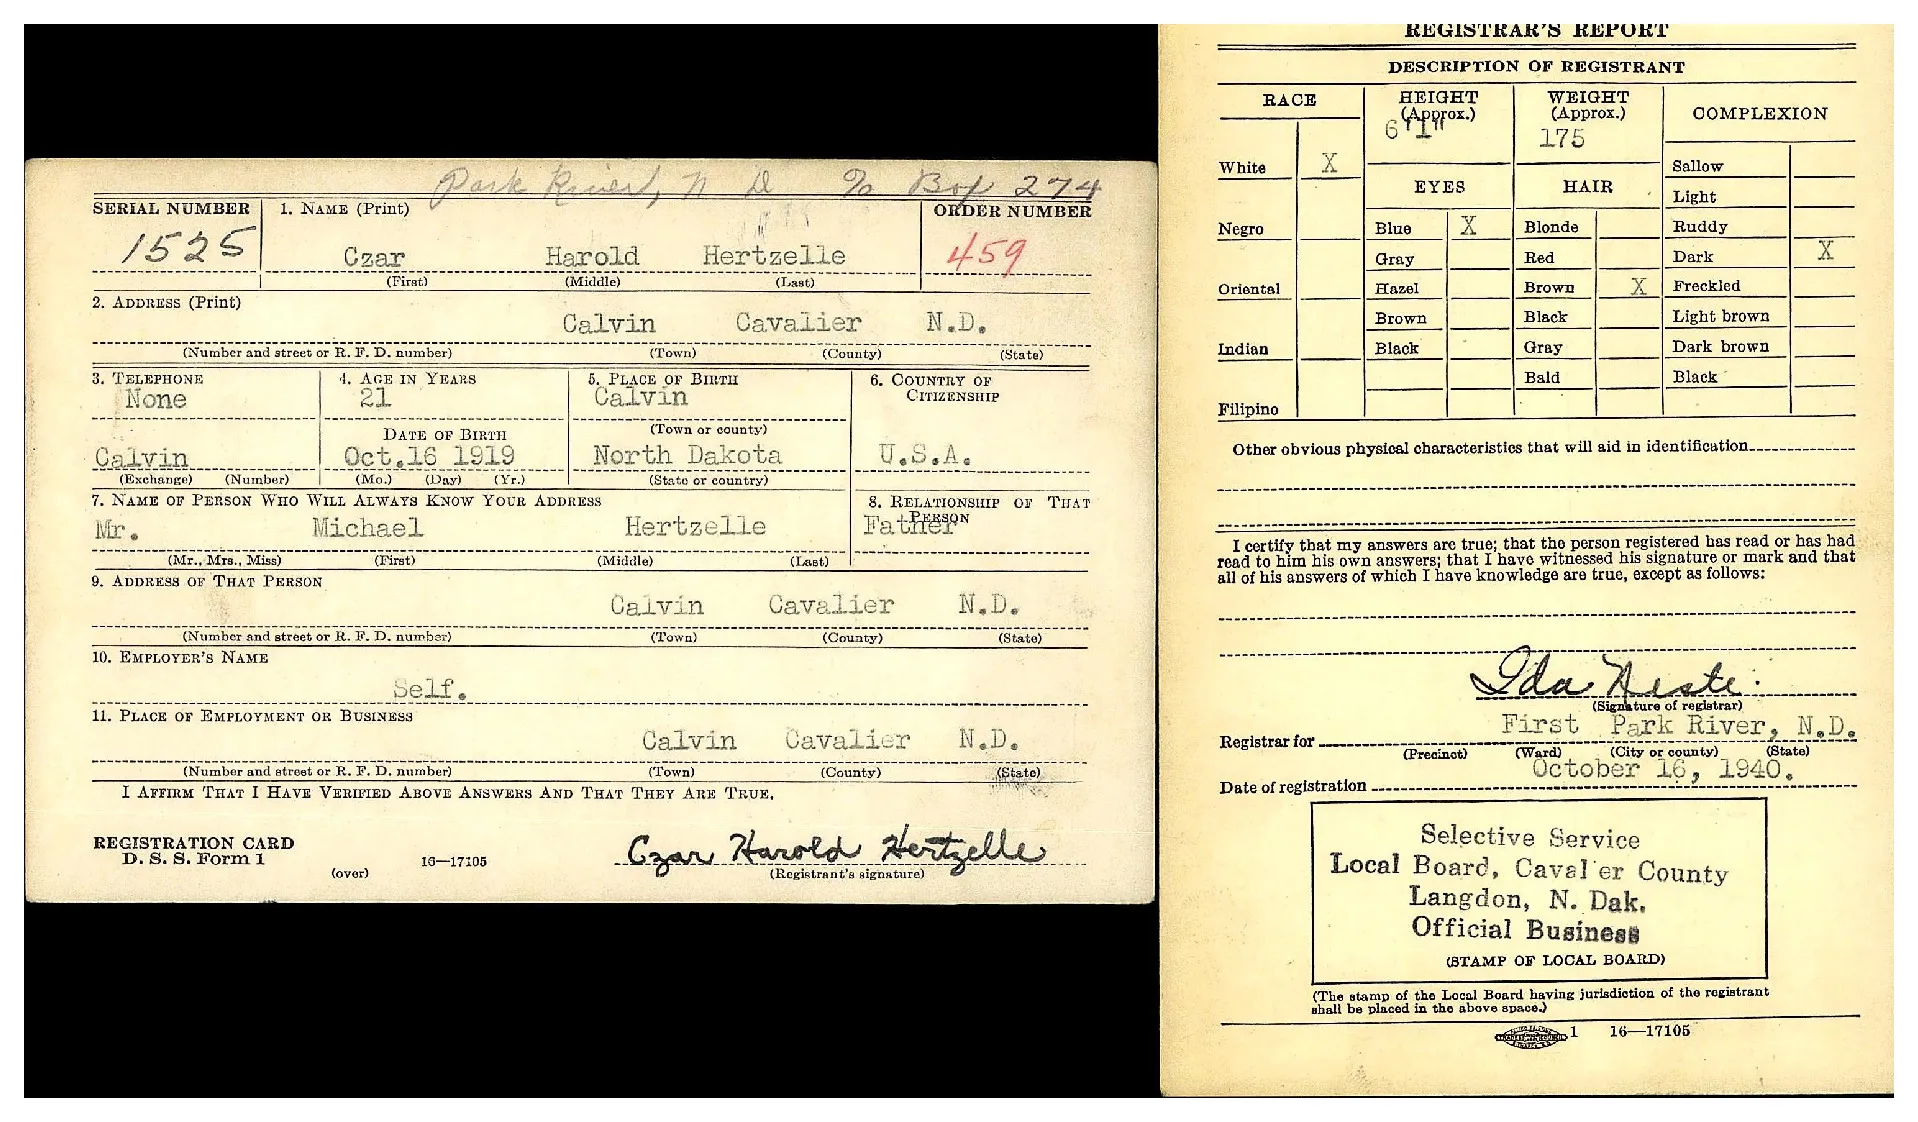 Park River, N D % Box 274
SERIAL NUMBER 1. NAME (Print) ORDER NUMBER
1525 Czar Harold Hertzelle 459
(First) (Middle) (Last)
2. ADDRESS (Print)
Calvin Cavalier N.D.
(Number and street or R. F. D. number) (Town) (County) (State)
3. TELEPHONE 4. AGE IN YEARS 5. PLACE OF BIRTH 6. COUNTRY OF CITIZENSHIP
None 21 Calvin
DATE OF BIRTH (Town or county)
Calvin Oct.16 1919 North Dakota U.S.A.
(Exchange) (Number) (Mo.) (Day) (Yr.) (State or country)
7. NAME OF PERSON WHO WILL ALWAYS KNOW YOUR ADDRESS 8. RELATIONSHIP OF THAT PERSON
Mr. Michael Hertzelle Father
(Mr., Mrs., Miss) (First) (Middle) (Last)
9. ADDRESS OF THAT PERSON
Calvin Cavalier N.D.
(Number and street or R. F. D. number) (Town) (County) (State)
10. EMPLOYER'S NAME
Self.
11. PLACE OF EMPLOYMENT OR BUSINESS
Calvin Cavalier N.D.
(Number and street or R. F. D. number) (Town) (County) (State)
I AFFIRM THAT I HAVE VERIFIED ABOVE ANSWERS AND THAT THEY ARE TRUE.
REGISTRATION CARD
D. S. S. Form 1 16—17105 Czar Harold Hertzelle
(over) (Registrant's signature)
REGISTRAR'S REPORT
DESCRIPTION OF REGISTRANT
RACE HEIGHT (Approx.) WEIGHT (Approx.) COMPLEXION
6'1" 175
White X Sallow
EYES HAIR Light
Negro Blue X Blonde Ruddy
Gray Red Dark X
Oriental Hazel Brown X Freckled
Brown Black Light brown
Indian Black Gray Dark brown
Bald Black
Filipino
Other obvious physical characteristics that will aid in identification
I certify that my answers are true; that the person registered has read or has had
read to him his own answers; that I have witnessed his signature or mark and that
all of his answers of which I have knowledge are true, except as follows:
Ida
(Signature of registrar)
First Park River, N.D.
Registrar for (Precinct) (Ward) (City or county) (State)
October 16, 1940.
Date of registration
Selective Service
Local Board, Caval er County
Langdon, N. Dak.
Official Business
(STAMP OF LOCAL BOARD)
(The stamp of the Local Board having jurisdiction of the registrant
shall be placed in the above space.)
1 16—17105